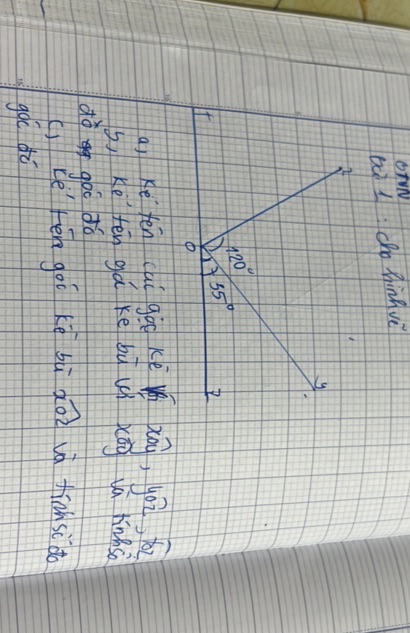 BTVN
bài 1 : cho hình vẽ
x
y
120°
55°
t
O
z
a, kể tên các góc kề xÔy, yÔz, tÔz
b, kể tên góc kề bù với xÔy và tính số
đo góc đó
c, kể tên góc kề bù xÔz và tính số đo
góc đó